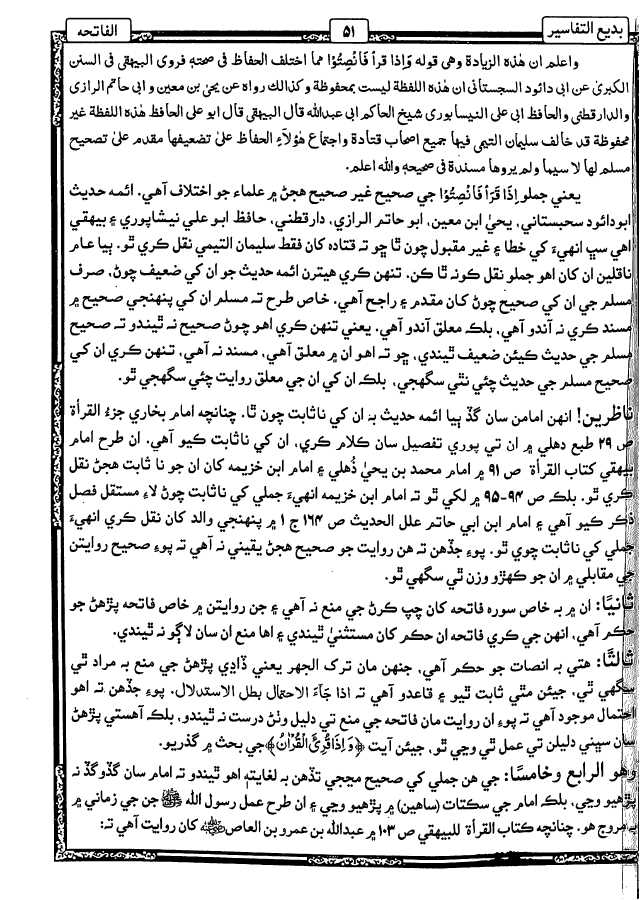 بديع التفاسير
۵۱
الفاتحه
واعلم ان هٰذه الزيادة وهى قوله وَاِذَا قَرأ فَاَنْصِتُوْا مما اختلف الحفاظ فى صحته فروى البيهقى فى السنن
الكبرىٰ عن ابى دائود السجستانى ان هذه اللفظة ليست بمحفوظة وكذالك رواه عن يحىٰ بن معين وابى حاتم الرازى
والدارقطنى والحافظ ابى على النيسابورى شيخ الحاكم ابى عبدالله قال البيهقى قال ابو على الحافظ هٰذه اللفظة غير
محفوظة قد خالف سليمان التيمى فيها جميع اصحاب قتادة واجتماع هٰؤلآء الحفاظ علىٰ تضعيفها مقدم علىٰ تصحيح
مسلم لها لا سيما ولم يروها مسندة فى صحيحه والله اعلم.
يعني جملو اِذَا قَرَأ فَاَنْصِتُوْا جي صحيح غير صحيح هجڻ ۾ علماء جو اختلاف آهي. ائمه حديث
ابودائود سجستاني، يحيٰ ابن معين، ابو حاتم الرازي، دارقطني، حافظ ابو علي نيشاپوري ۽ بيهقي
اهي سڀ انهيءَ کي خطا ۽ غير مقبول چون ٿا ڇو ته قتاده کان فقط سليمان التيمي نقل ڪري ٿو. ٻيا عام
ناقلين ان کان اهو جملو نقل ڪونه ٿا ڪن. تنهن ڪري هيترن ائمه حديث جو ان کي ضعيف چوڻ، صرف
مسلم جي ان کي صحيح چوڻ کان مقدم ۽ راجح آهي. خاص طرح ته مسلم ان کي پنهنجي صحيح ۾
مسند ڪري نه آندو آهي، بلڪه معلق آندو آهي. يعني تنهن ڪري اهو چوڻ صحيح نه ٿيندو ته صحيح
مسلم جي حديث ڪيئن ضعيف ٿيندي، ڇو ته اهو ان ۾ معلق آهي، مسند نه آهي، تنهن ڪري ان کي
صحيح مسلم جي حديث چئي نٿي سگهجي، بلڪه ان کي ان جي معلق روايت چئي سگهجي ٿو.
ناظرين! انهن امامن سان گڏ ٻيا ائمه حديث به ان کي ناثابت چون ٿا. چنانچه امام بخاري جزءُ القرأة
ص ۲۹ طبع دهلي ۾ ان تي پوري تفصيل سان ڪلام ڪري، ان کي ناثابت ڪيو آهي. ان طرح امام
بيهقي کتاب القرأة ص ۹۱ ۾ امام محمد بن يحيٰ ذُهلي ۽ امام ابن خزيمه کان ان جو نا ثابت هجڻ نقل
ڪري ٿو. بلڪ ص ۹۴-۹۵ ۾ لکي ٿو ته امام ابن خزيمه انهيءَ جملي کي ناثابت چوڻ لاءِ مستقل فصل
ذڪر ڪيو آهي ۽ امام ابن ابي حاتم علل الحديث ص ۱۶۴ ج ۱ ۾ پنهنجي والد کان نقل ڪري انهيءَ
جملي کي ناثابت چوي ٿو. پوءِ جڏهن ته هن روايت جو صحيح هجڻ يقيني نه آهي ته پوءِ صحيح روايتن
جي مقابلي ۾ ان جو ڪهڙو وزن ٿي سگهي ٿو.
ثانيًا: ان ۾ به خاص سوره فاتحه کان چپ ڪرڻ جي منع نه آهي ۽ جن روايتن ۾ خاص فاتحه پڙهڻ جو
حڪم آهي، انهن جي ڪري فاتحه ان حڪم کان مستثنيٰ ٿيندي ۽ اها منع ان سان لاڳو نه ٿيندي.
ثالثًا: هتي به انصات جو حڪم آهي، جنهن مان ترک الجهر يعني ڏاڍي پڙهڻ جي منع به مراد ٿي
سگهي ٿي، جيئن مٿي ثابت ٿيو ۽ قاعدو آهي ته اذا جَآءَ الاحتمال بطل الاستدلال. پوءِ جڏهن ته اهو
احتمال موجود آهي ته پوءِ ان روايت مان فاتحه جي منع تي دليل وٺڻ درست نه ٿيندو، بلڪه آهستي پڙهڻ
سان سڀني دليلن تي عمل ٿي وڃي ٿو، جيئن آيت ﴿وَاِذَا قُرِئَ الْقُرْاٰنُ﴾ جي بحث ۾ گذريو.
وهو الرابع وخامسًا: جي هن جملي کي صحيح مڃجي تڏهن به لغايته اهو ٿيندو ته امام سان گڏوگڏ نه
پڙهيو وڃي، بلڪه امام جي سڪتات (ساهين) ۾ پڙهيو وڃي ۽ ان طرح عمل رسول الله ﷺ جن جي زماني ۾
به مروج هو. چنانچه ڪتاب القرأة للبيهقي ص ۱۰۳ ۾ عبدالله بن عمرو بن العاص کان روايت آهي ته: